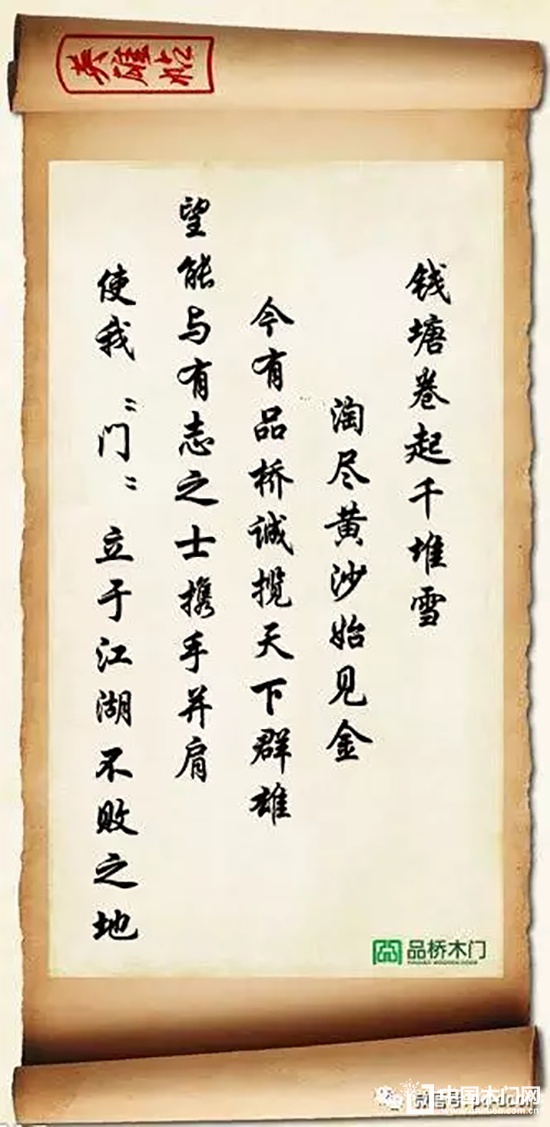 英雄帖
钱塘卷起千堆雪
淘尽黄沙始见金
今有品桥诚揽天下群雄
望能与有志之士携手并肩
使我“门”立于江湖不败之地
品桥木门
中国木门网